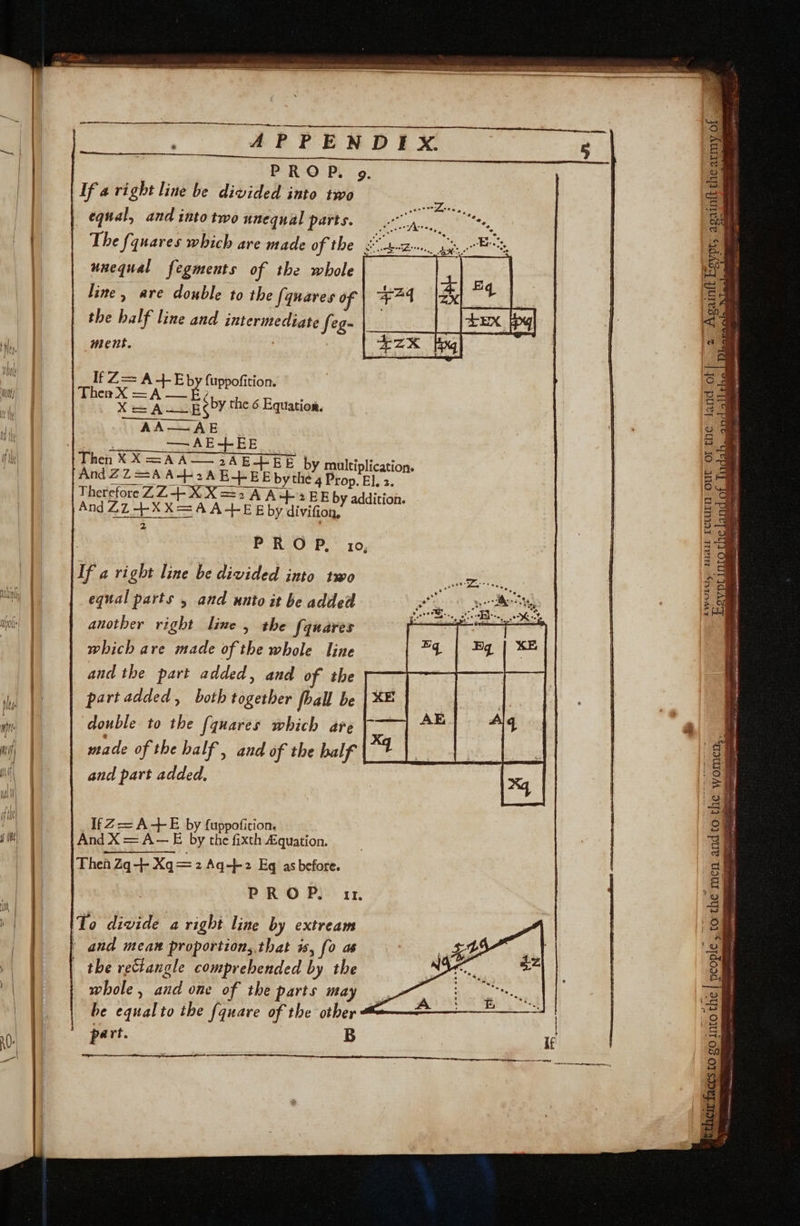 APPENDIX. 5
PROP. 9.
If a right line be divided into two
equal, and into two unequal parts.
The ſquares which are made of the
unequal ſegments of the whole
line, are double to the ſquares of
the half line and intermediate ſeg-
ment.
Z
A
E
½Zq
Eq
½EX
½ZX
If Z = A + E by ſuppoſition.
Then X = A — E
X = A — E } by the 6 Equation.
AA — AE
— AE + EE
Then XX = AA — 2AE + EE by multiplication.
And ZZ = AA + 2AE + EE by the 4 Prop. El. 2.
Therefore ZZ + XX = 2 AA + 2 EE by addition.
And ZZ + XX = AA + EE by diviſion,
2
PROP. 10,
If a right line be divided into two
equal parts , and unto it be added
another right line , the ſquares
which are made of the whole line
and the part added, and of the
part added , both together ſhall be
double to the ſquares which are
made of the half , and of the half
and part added.
Z
A
E E X
Eq Eq XE
XE
AE Aq
Xq
Xq
If Z = A + E by ſuppoſition.
And X = A — E by the ſixth Æquation.
Then Zq + Xq = 2 Aq + 2 Eq as before.
PROP. 11.
To divide a right line by extream
and mean proportion, that is, ſo as
the rectangle comprehended by the
whole , and one of the parts may
be equal to the ſquare of the other
part.
A E
B
If
their faces to go into the
people, to the men and to the women,